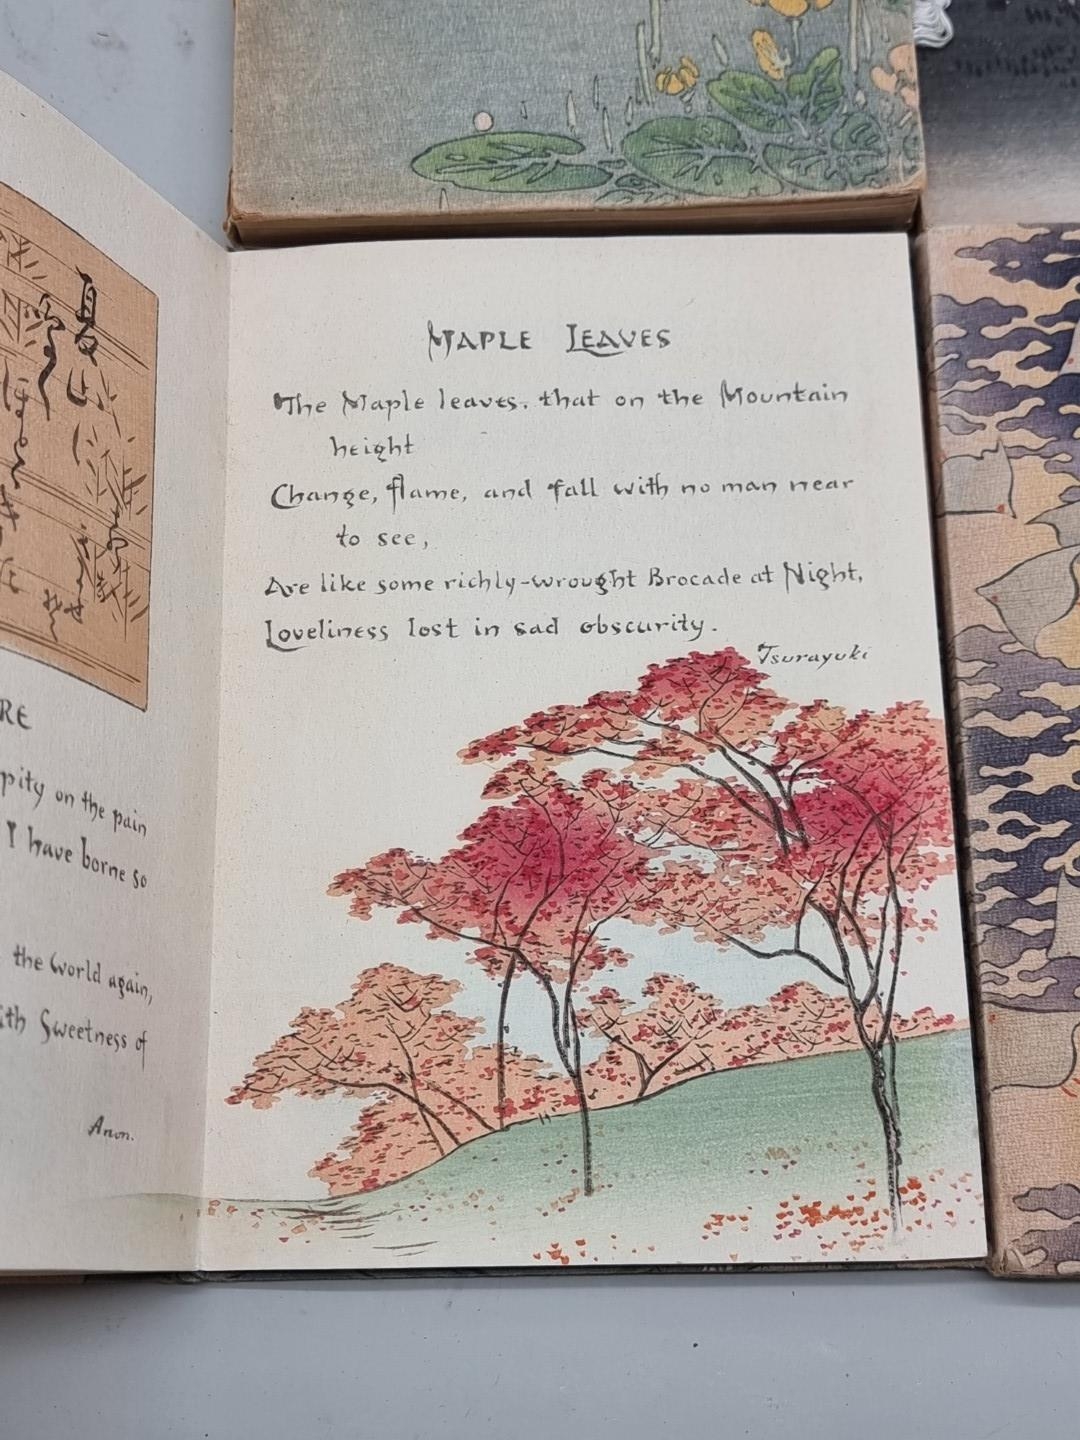 夏
RE
pity on the pain
I have borne so
the World again,
Sweetness of
Anon.
MAPLE LEAVES
The Maple leaves, that on the Mountain
height
Change, flame, and fall with no man near
to see,
Are like some richly-wrought Brocade at Night,
Loveliness lost in sad obscurity.
Tsurayuki